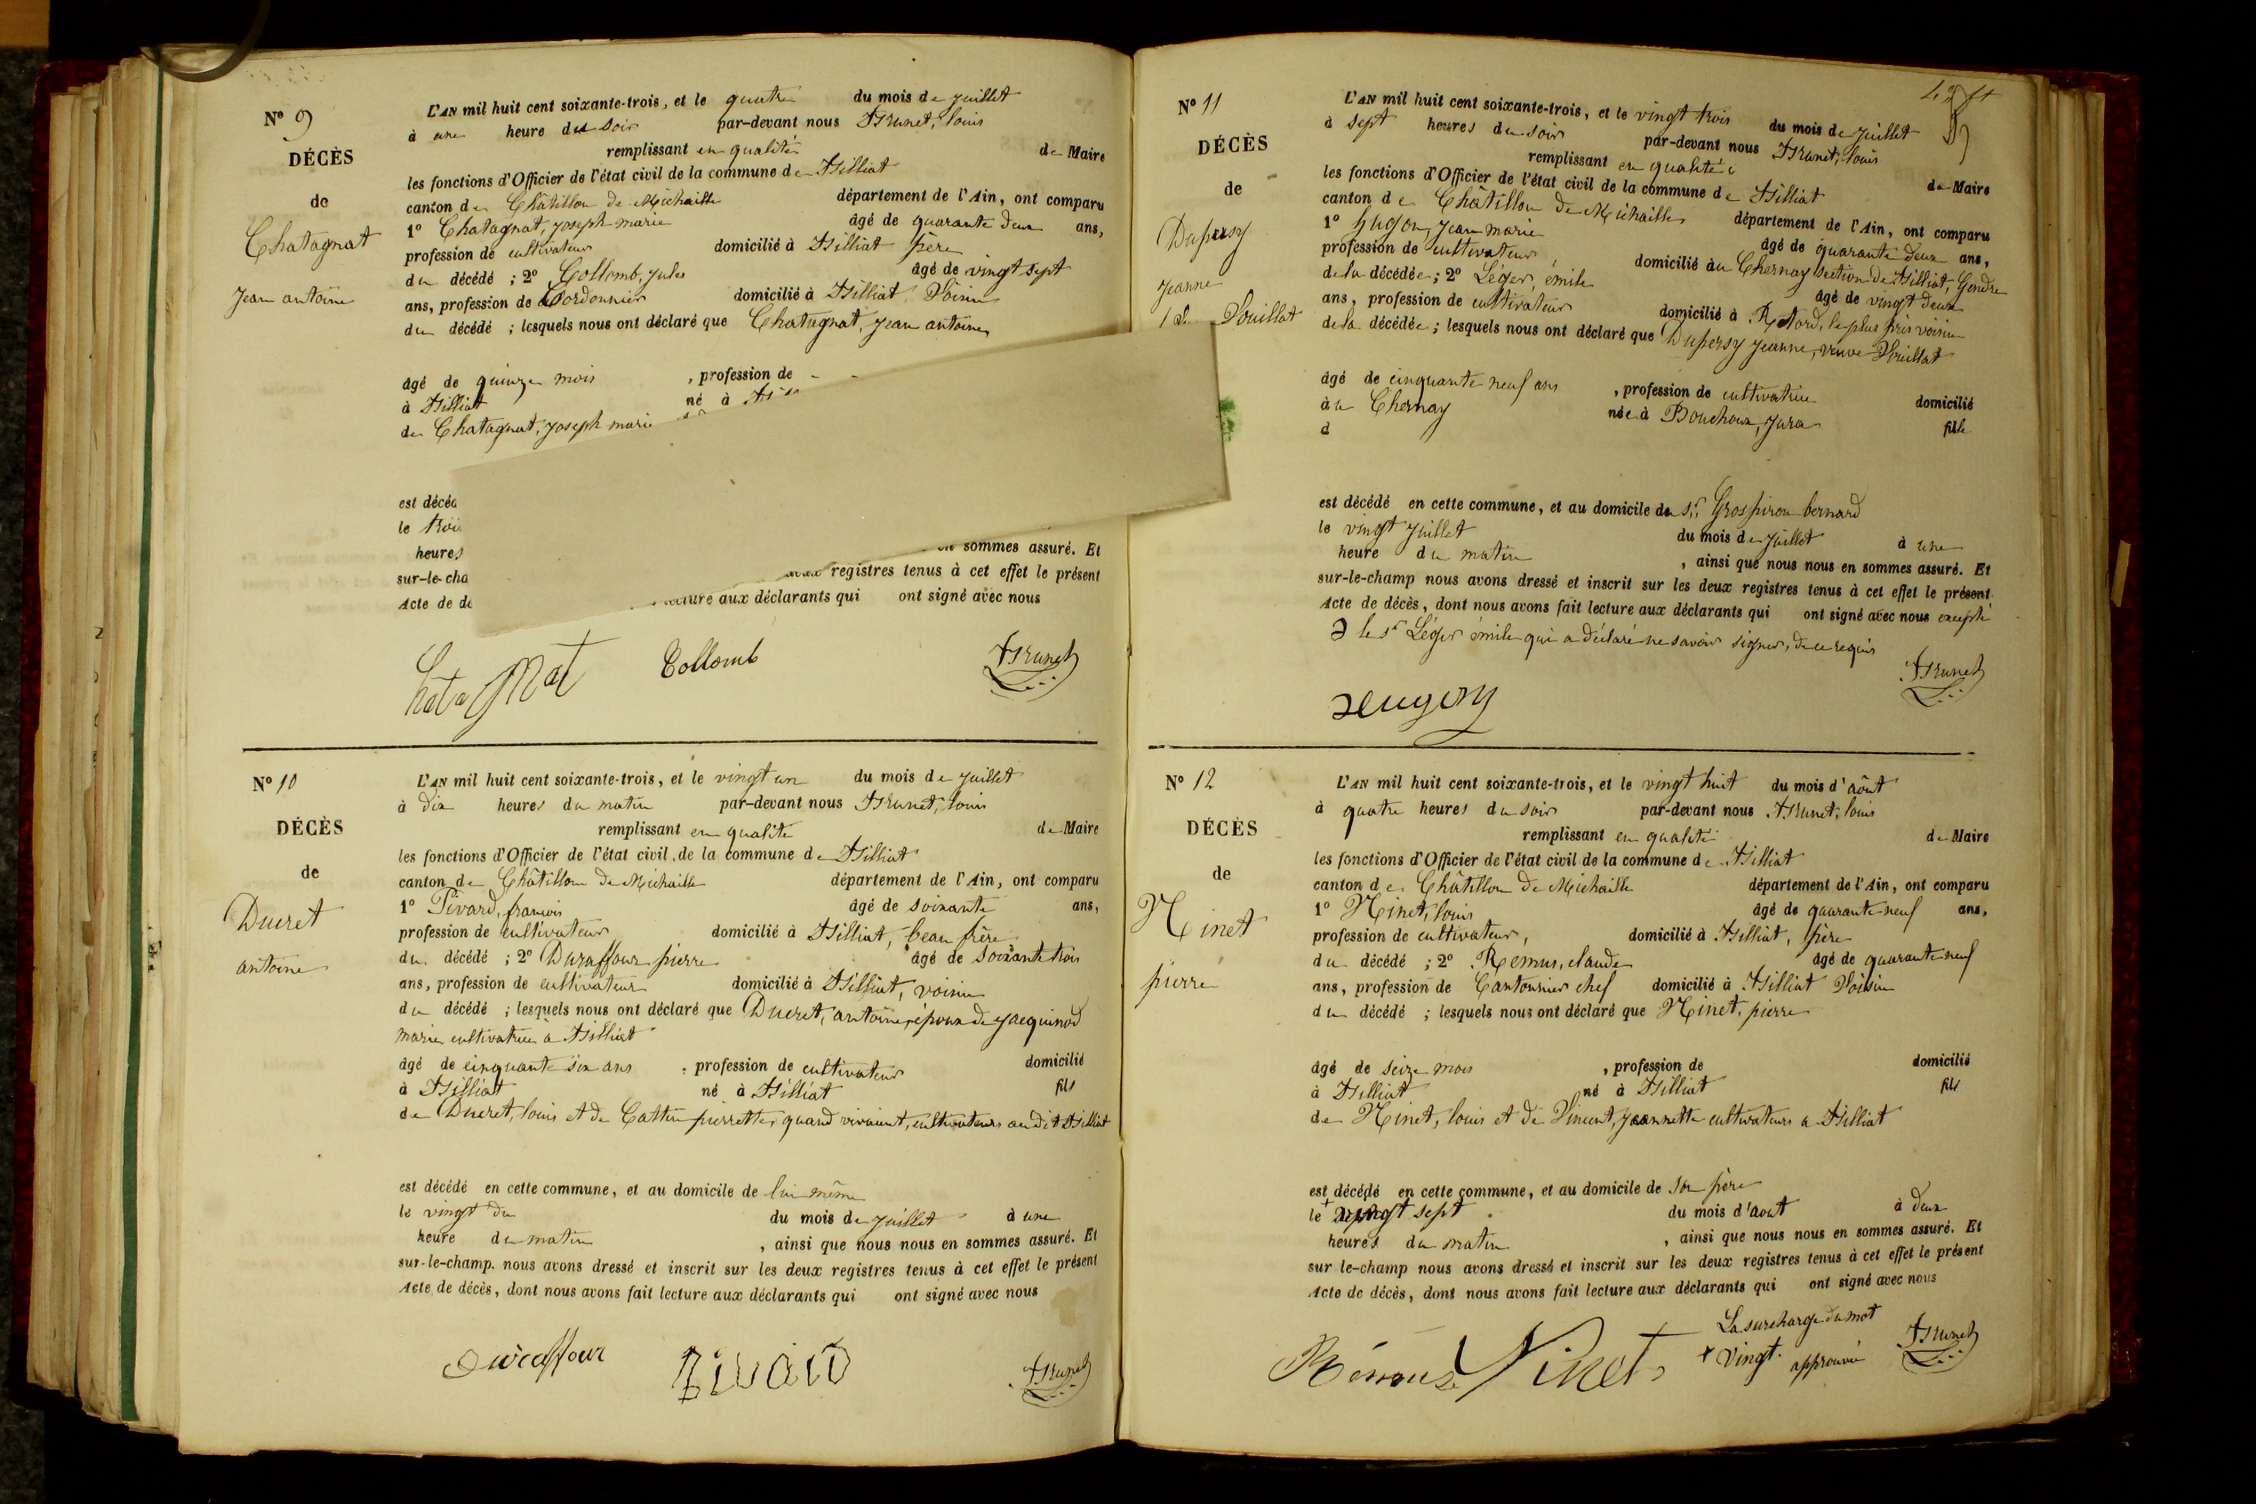 N° 9
DÉCÈS
de
Chatagnat
Jean antoine
L'AN mil huit cent soixante-trois, et le quatre du mois de juillet
à une heure du soir par-devant nous Brunet, louis
remplissant en qualité de Maire
les fonctions d'Officier de l'état civil de la commune de Billiat
canton de Châtillon de Michaille département de l'Ain, ont comparu
1° Chatagnat, joseph marie âgé de quarante deux ans,
profession de cultivateur domicilié à Billiat père
du décédé ; 2° Collomb, jules âgé de vingt sept
ans, profession de Cordonnier domicilié à Billiat Voisin
du décédé ; lesquels nous ont déclaré que Chatagnat, jean antoine
âgé de quinze mois , profession de
à Billiat né à
de Chatagnat, joseph marie
est décéd
le
heures
sommes assuré. Et
sur-le-cha registres tenus à cet effet le présent
Acte de dé lecture aux déclarants qui ont signé avec nous
Collomb Brunet
N° 10
DÉCÈS
de
Ducret
antoine
L'AN mil huit cent soixante-trois, et le vingt un du mois de juillet
à dix heures du matin par-devant nous Brunet, louis
remplissant en qualité de Maire
les fonctions d'Officier de l'état civil de la commune de Billiat
canton de Châtillon de Michaille département de l'Ain, ont comparu
1° Pivard, françois âgé de soixante ans,
profession de cultivateur domicilié à Billiat, beau frère
du décédé ; 2° Duraffour pierre âgé de soixante trois
ans, profession de cultivateur domicilié à Billiat, voisin
du décédé ; lesquels nous ont déclaré que Ducret, antoine, époux de jacquinod
marie cultivatrice à Billiat
âgé de cinquante six ans , profession de cultivateur domicilié
à Billiat né à Billiat fils
de Ducret, louis et de Cattin pierrette, quand vivaient, cultivateurs au dit Billiat
est décédé en cette commune, et au domicile de lui même
le vingt du du mois de juillet à une
heure du matin , ainsi que nous nous en sommes assuré. Et
sur-le-champ nous avons dressé et inscrit sur les deux registres tenus à cet effet le présent
Acte de décès, dont nous avons fait lecture aux déclarants qui ont signé avec nous
Duraffour Pivard Brunet
N° 11
DÉCÈS
de
Dupersy
jeanne
Vouillat
L'AN mil huit cent soixante-trois, et le vingt trois du mois de juillet
à sept heures du soir par-devant nous Brunet, louis
remplissant en qualité de Maire
les fonctions d'Officier de l'état civil de la commune de Billiat
canton de Châtillon de Michaille département de l'Ain, ont comparu
1° Hugon, jean marie âgé de quarante deux ans,
profession de cultivateur domicilié au Chernay section de Billiat, Gendre
de la décédée ; 2° Léger, émile âgé de vingt deux
ans, profession de cultivateur domicilié à , le plus près voisin
de la décédée ; lesquels nous ont déclaré que Dupersy jeanne, veuve Vouillat
âgé de cinquante neuf ans , profession de cultivatrice domicilié
à u Chernay née à Bouchoux, jura fille
d
est décédé en cette commune, et au domicile de sr. Grospiron bernard
le vingt juillet du mois de juillet à une
heure du matin , ainsi que nous nous en sommes assuré. Et
sur-le-champ nous avons dressé et inscrit sur les deux registres tenus à cet effet le présent
Acte de décès, dont nous avons fait lecture aux déclarants qui ont signé avec nous excepté
le sr Léger émile qui a déclaré ne savoir signer, de ce requis
Brunet
N° 12
DÉCÈS
de
Ninet
pierre
L'AN mil huit cent soixante-trois, et le vingt huit du mois d'août
à quatre heures du soir par-devant nous Brunet, louis
remplissant en qualité de Maire
les fonctions d'Officier de l'état civil de la commune de Billiat
canton de Châtillon de Michaille département de l'Ain, ont comparu
1° Ninet, louis âgé de quarante neuf ans,
profession de cultivateur, domicilié à Billiat, père
du décédé ; 2° Remus, claude âgé de quarante neuf
ans, profession de Cantonnier chef domicilié à Billiat Voisin
du décédé ; lesquels nous ont déclaré que Ninet, pierre
âgé de seize mois , profession de domicilié
à Billiat né à Billiat fils
de Ninet, louis et de Vincent, jeannette cultivateurs à Billiat
est décédé en cette commune, et au domicile de son père
le + vingt sept du mois d'aout à deux
heures du matin , ainsi que nous nous en sommes assuré. Et
sur le-champ nous avons dressé et inscrit sur les deux registres tenus à cet effet le présent
Acte de décès, dont nous avons fait lecture aux déclarants qui ont signé avec nous
La surcharge du mot
+ Vingt. approuvée
Ninet Brunet